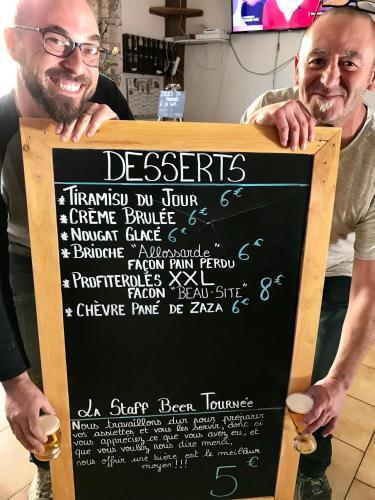 DESSERTS
* TIRAMISU DU JOUR 6€
* CRÈME BRULÉE 6€
* NOUGAT GLACÉ 6€
* BRIOCHE "Allossarde" 6€
FAÇON PAIN PERDU
* PROFITEROLES XXL 8€
FAÇON "BEAU-SITE"
* CHÈVRE PANÉ DE ZAZA 6€
LA STAFF BEER TOURNÉE
Nous travaillons dur pour préparer
vos assiettes et vous les servir, donc si
vous appréciez ce que vous avez eu, et
que vous voulez nous dire merci,
nous offrir une bière est le meilleur
moyen !!!
5€